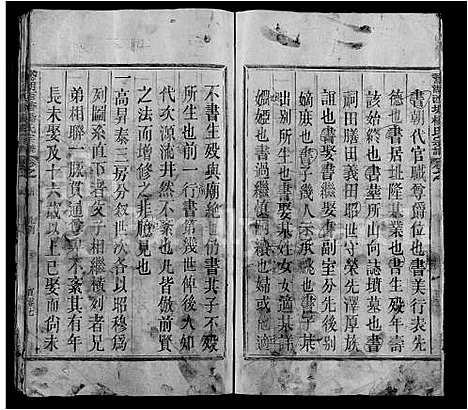 一書朝代官職尊爵位也書美行表先
德也書居址隆基業也書生殁年壽
該始終也書墓所山向誌墳墓也書
祠田膳田義田昭世守榮先澤厚族
誼也書娶書繼書副室分先後別
嫡庶也書子幾人示承祧也書子某
出別所生也書娶某姓女女適某詳
婚婭也書過繼慎也書婦或他適
不書生殁與廟絶也仍書其子不殁
所生也前一行書第幾世俾後人如
代次源流井然不紊也皆倣前賢
之法而增修之非臆見也
一高昇泰三房分叙世次各以昭穆爲
列圖系直下者父子相繼橫列者兄
弟相聯一脈貫通尊卑不紊其有年
長未娶及十六歲以上已聚而尚未